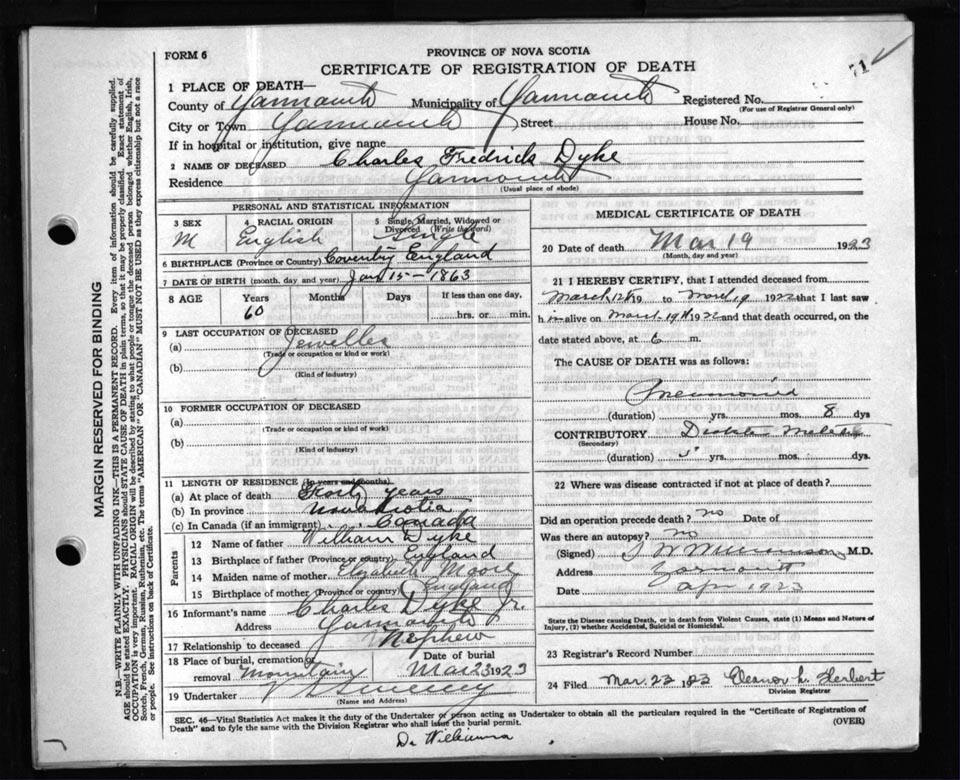 71
FORM 6
PROVINCE OF NOVA SCOTIA
CERTIFICATE OF REGISTRATION OF DEATH
1 PLACE OF DEATH—
County of Yarmouth Municipality of Yarmouth Registered No.
(For use of Registrar General only)
City or Town Yarmouth Street House No.
If in hospital or institution, give name
2 NAME OF DECEASED Charles Fredrick Dyke
Residence Yarmouth
(Usual place of abode)
PERSONAL AND STATISTICAL INFORMATION
3 SEX M
4 RACIAL ORIGIN English
5 Single, Married, Widowed or Divorced (Write the word) Single
6 BIRTHPLACE (Province or Country) Coventry England
7 DATE OF BIRTH (month, day and year) Jan 15 – 1863
8 AGE Years Months Days If less than one day,
60 hrs. or min.
9 LAST OCCUPATION OF DECEASED
(a) Jeweller
(Trade or occupation or kind or work)
(b)
(Kind of industry)
10 FORMER OCCUPATION OF DECEASED
(a)
(Trade or occupation or kind of work)
(b)
(Kind of industry)
11 LENGTH OF RESIDENCE (in years and months)
(a) At place of death years
(b) In province Nova Scotia
(c) In Canada (if an immigrant) Canada
Parents
12 Name of father William Dyke
13 Birthplace of father (Province or country) England
14 Maiden name of mother Elizabeth Moore
15 Birthplace of mother (Province or country) England
16 Informant's name Charles Dyke Jr.
Address Yarmouth
17 Relationship to deceased Nephew
18 Place of burial, cremation or removal Mountain
Date of burial Mar 23 1923
19 Undertaker Sweeny
(Name and Address)
MEDICAL CERTIFICATE OF DEATH
20 Date of death Mar 19 1923
(Month, day and year)
21 I HEREBY CERTIFY, that I attended deceased from
March 12 19 to March 19 1922 that I last saw
h im alive on March 19th 192 and that death occurred, on the
date stated above, at 6 m.
The CAUSE OF DEATH was as follows:
Pneumonia
(duration) yrs. mos. 8 dys
CONTRIBUTORY
(Secondary)
(duration) 5 yrs. mos. dys.
22 Where was disease contracted if not at place of death?
Did an operation precede death? no Date of
Was there an autopsy? no
(Signed) M.D.
Address Yarmouth
Date Apr 1923
State the Disease causing Death, or in death from Violent Causes, state (1) Means and Nature of
Injury, (2) whether Accidental, Suicidal or Homicidal.
23 Registrar's Record Number
24 Filed Mar. 23 1923 Eleanor L. Herbert
Division Registrar
SEC. 46—Vital Statistics Act makes it the duty of the Undertaker or person acting as Undertaker to obtain all the particulars required in the "Certificate of Registration of
Death" and to fyle the same with the Division Registrar who shall issue the burial permit. (OVER)
Dr Williamson
MARGIN RESERVED FOR BINDING
N.B.—WRITE PLAINLY WITH UNFADING INK—THIS IS A PERMANENT RECORD. Every item of information should be carefully supplied.
AGE should be stated EXACTLY. PHYSICIANS should STATE CAUSE OF DEATH in plain terms, so that it may be properly classified. Exact statement of
OCCUPATION is very important. RACIAL ORIGIN will be described by stating to what people or tongue the deceased person belonged, whether English, Irish,
Scotch, French, German, Russian, Ruthenian, etc. The terms "AMERICAN" OR "CANADIAN" MUST NOT BE USED as they express citizenship but not a race
or people. See instructions on back of Certificate.